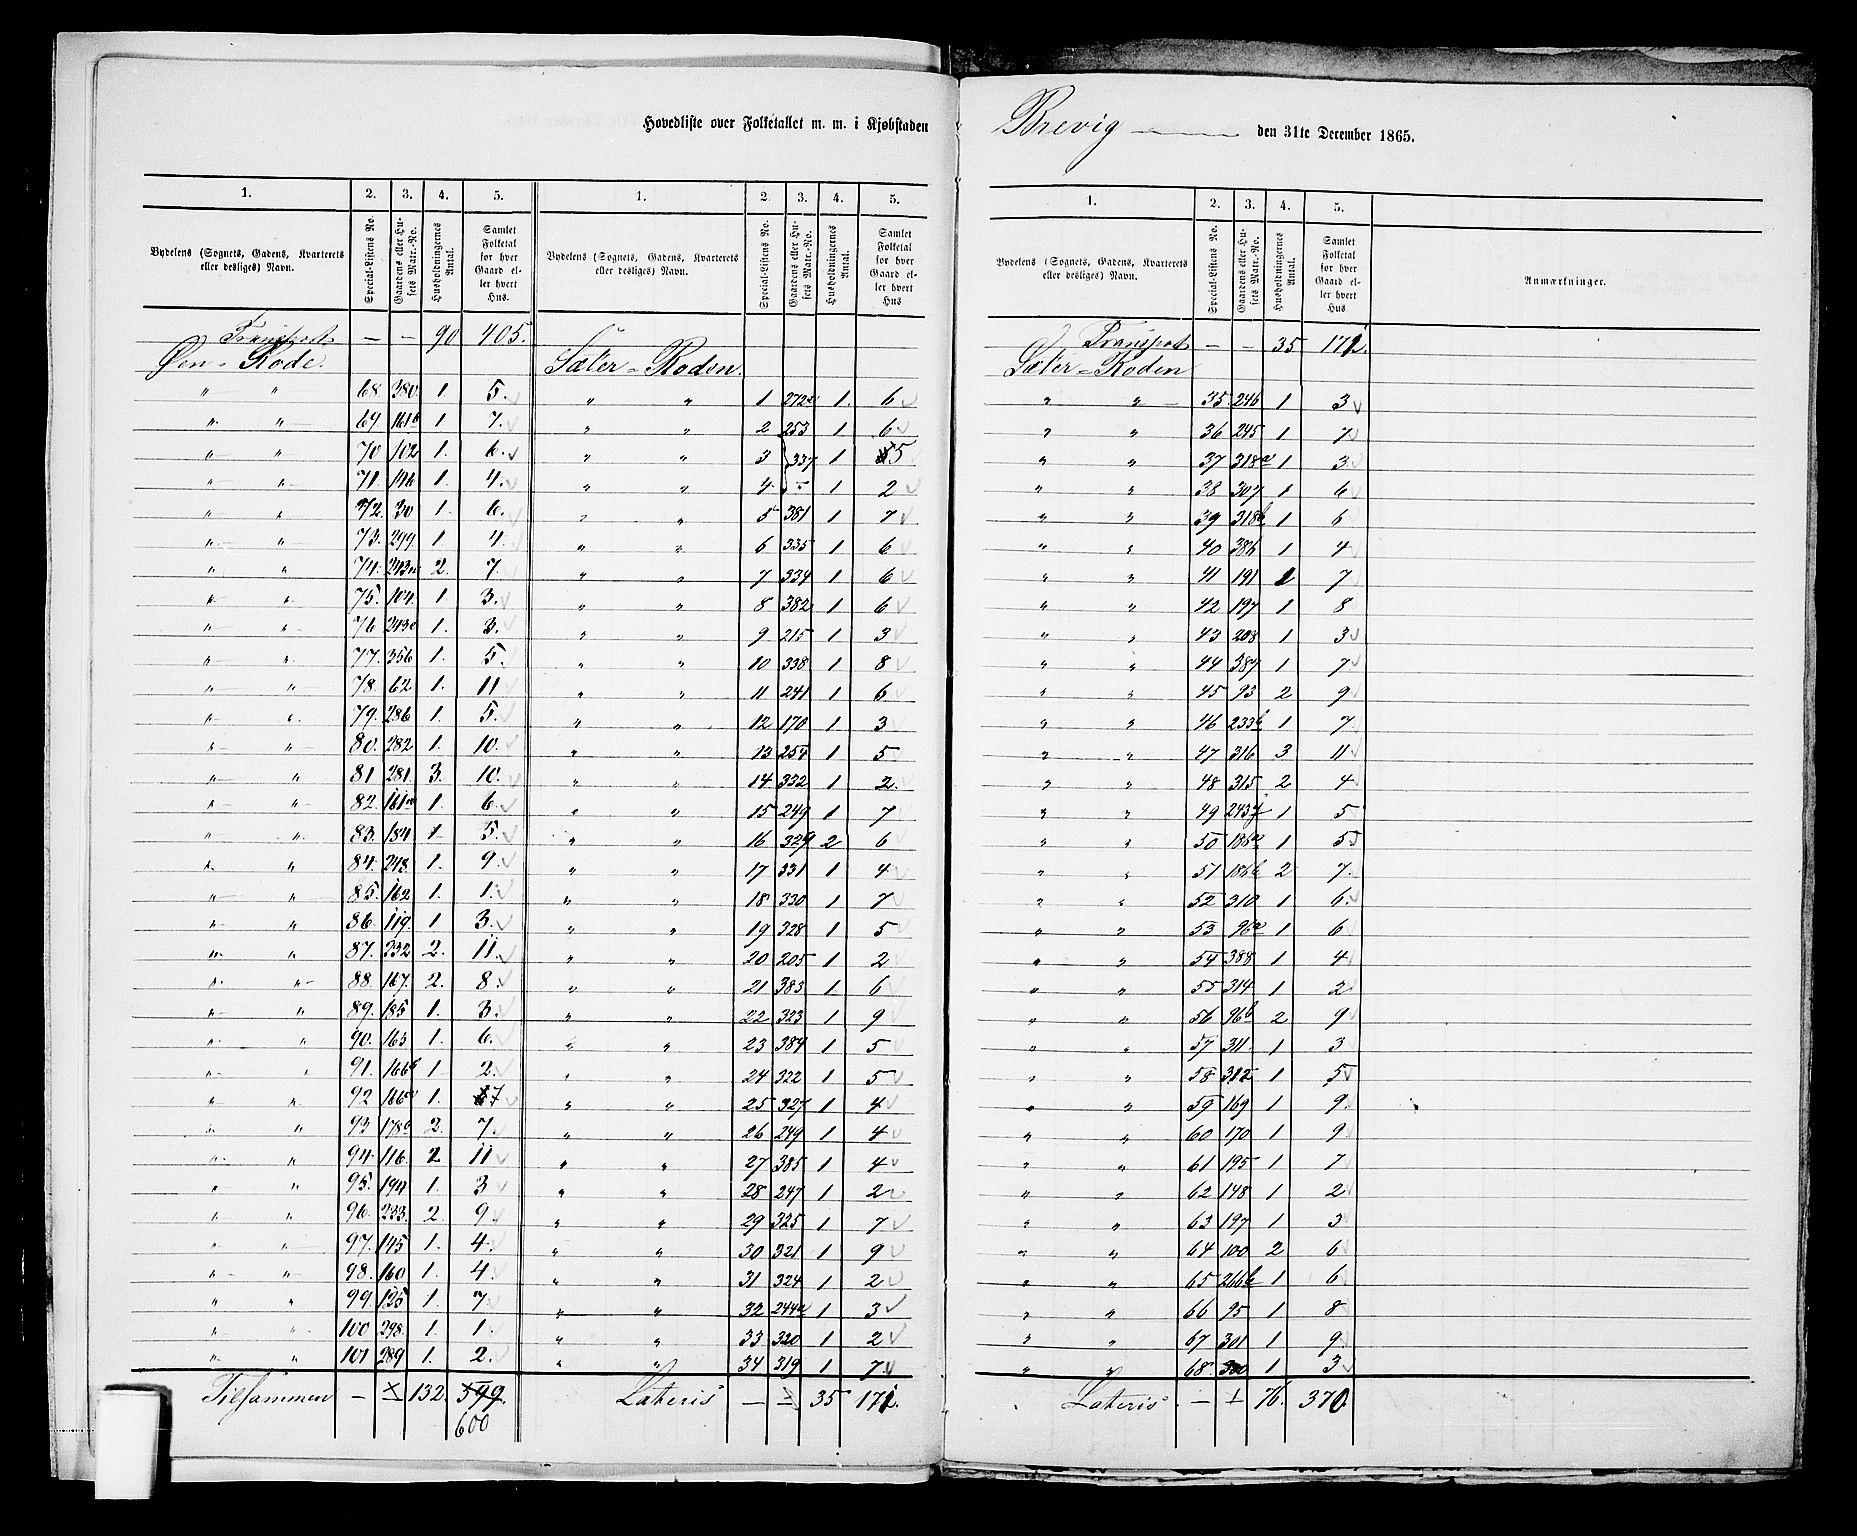 Hovedliste over Folketallet m. m. i Kjøbstaden Brevig den 31te December 1865.
1. 2. 3. 4. 5. 1. 2. 3. 4. 5.
Bydelens (Sognets, Gadens, Kvarterets eller desliges) Navn. Special-Listens No. Gaardens eller Husets Matr.-No. Husholdningernes Antal. Samlet Folketal for hver Gaard eller hvert Hus. Bydelens (Sognets, Gadens, Kvarterets eller desliges) Navn. Special-Listens No. Gaardens eller Husets Matr.-No. Husholdningernes Antal. Samlet Folketal for hver Gaard eller hvert Hus
Transport — — 90 405.
Øen-Rode. Sæter-Roden.
" " 68 380. 1. 5. " " 1 272a 1. 6
" " 69. 161b 1 7. " " 2 253 1 6
" " 70 102 1. 6. " " 3 337 1 5
" " 71. 146 1. 4. " " 4. " 1 2
" " 72. 30 1. 6. " " 5 381 1 7
" " 73. 299 1 4. " " 6 335 1 6
" " 74. 243 2. 7. " " 7 334 1 6
" " 75. 104. 1 3. " " 8 382 1 6
" " 76 243 1. 3. " " 9 215 1 3
" " 77. 356 1. 5. " " 10 338 1 8
" " 78. 62 1. 11 " " 11 241 1 6
" " 79. 286 1. 5. " " 12 170 1 3
" " 80. 282 1. 10. " " 13 254 1 5
" " 81 281. 3. 10. " " 14 332 1 2.
" " 82. 161 1. 6. " " 15 249 1 7
" " 83. 184 1. 5. " " 16 329 2 6
" " 84. 248. 1. 9. " " 17 331 1 4
" " 85. 162 1. 1. " " 18 330 1 7
" " 86. 119. 1 3. " " 19 328 1 5
" " 87. 232 2. 11. " " 20 205 1 2
" " 88. 167. 2. 8. " " 21 383 1 6
" " 89. 185 1. 3. " " 22 323 1 9
" " 90. 163 1. 6. " " 23 384 1 5
" " 91. 166b 1 2. " " 24 322 1 5
" " 92 166a 1. 7 " " 25 327 1 4
" " 93 178b 2. 7. " " 26 249 1 4
" " 94. 116. 2 11 " " 27 385 1 4
" " 95. 194 1. 3 " " 28 247 1 2
" " 96. 233. 2. 9 " " 29 325 1 7
" " 97. 145 1. 4. " " 30 321 1 9
" " 98. 160 1. 4. " " 31 324 1 2
" " 99 125 1. 7 " " 32 244a 1 3
" " 100 298. 1. 1. " " 33 320 1 2
" " 101 289 1. 2. " " 34 319 1 7
Tilsammen — 132. 599. Lateris — 35 171.
600
1. 2. 3. 4. 5.
Bydelens (Sognets, Gadens, Kvarterets eller desliges) Navn. Special-Listens No. Gaardens eller Husets Matr.-No. Husholdningernes Antal. Samlet Folketal for hver Gaard eller hvert Hus Anmærkninger.
Transport — — 35 171.
Sæter-Roden
" " 35. 246 1 3
" " 36 245 1 7
" " 37 318a 1 3
" " 38 307 1 6
" " 39 318b 1 6
" " 40 386 1 4
" " 41 191 1 7
" " 42 197 1 8
" " 43 208 1 3
" " 44 387 1 7
" " 45 93 2 9
" " 46 233b 1 7
" " 47 316 3 11
" " 48 315 2 4
" " 49 243 1 5
" " 50 186a 1 5
" " 51 186b 2 7.
" " 52 310 1 6.
" " 53 96a 1 6
" " 54 388 1 4
" " 55 314 1 2
" " 56 96b 2 9
" " 57 311. 1 3
" " 58 312 1 5
" " 59 169 1 9.
" " 60 170 1 9
" " 61 195 1 7
" " 62 148 1 2
" " 63 197 1 3
" " 64 100 2 6
" " 65 266b 1 6
" " 66 95 1 8
" " 67 301 1 9.
" " 68. 300 1 3
Lateris — 76. 370.